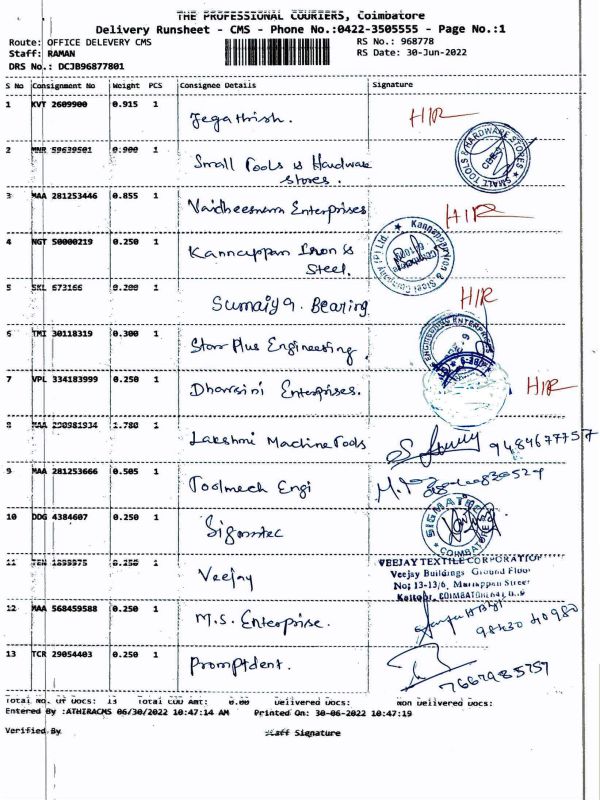 THE PROFESSIONAL COURIERS, Coimbatore
Delivery Runsheet - CMS - Phone No.:0422-3505555 - Page No.:1
Route: OFFICE DELEVERY CMS RS No.: 968778
Staff: RAMAN RS Date: 30-Jun-2022
DRS No.: DCJB96877801
S No Consignment No Weight PCS Consignee Details Signature
1 KVT 2609900 0.915 1 Jegathrish. HIR
2 MNR 59639501 0.900 1 Small Tools is Hardware
stores.
SMALL TOOLS & HARDWARE STORES
3 MAA 281253446 0.855 1 Vaidheeswara Enterprises HIR
4 NGT 50000219 0.250 1 Kannappan Iron is
Steel.
Kannappan Iron & Steel Company (P) Ltd.
5 SKL 673166 0.200 1 Sumaiya. Bearing HIR
6 TMI 30118319 0.300 1 Star Plus Engineering.
ENGINEERING ENTERPRISE
7 VPL 334183999 0.250 1 Dharsini Enterprises. HIR
8 MAA 290981934 1.780 1 Lakshmi Machine Tools 9484677757
9 MAA 281253666 0.505 1 Toolmech Engi
10 DDG 4384607 0.250 1 Sigmatec
SIGMATEC
COIMBATORE
11 TEN 1899975 0.250 1 Veejay
VEEJAY TEXTILE CORPORATION
Veejay Buildings Ground Floor
No: 13-13/6, Mariappan Street
Kattoor, COIMBATORE-641 009
12 MAA 568459588 0.250 1 M.S. Enterprise. 98430 40980
13 TCR 29054403 0.250 1 Promptdent. 7667985757
Total No. Of Docs: 13 Total COD Amt: 0.00 Delivered Docs: Non Delivered Docs:
Entered By :ATHIRACMS 06/30/2022 10:47:14 AM Printed On: 30-06-2022 10:47:19
Verified By Staff Signature